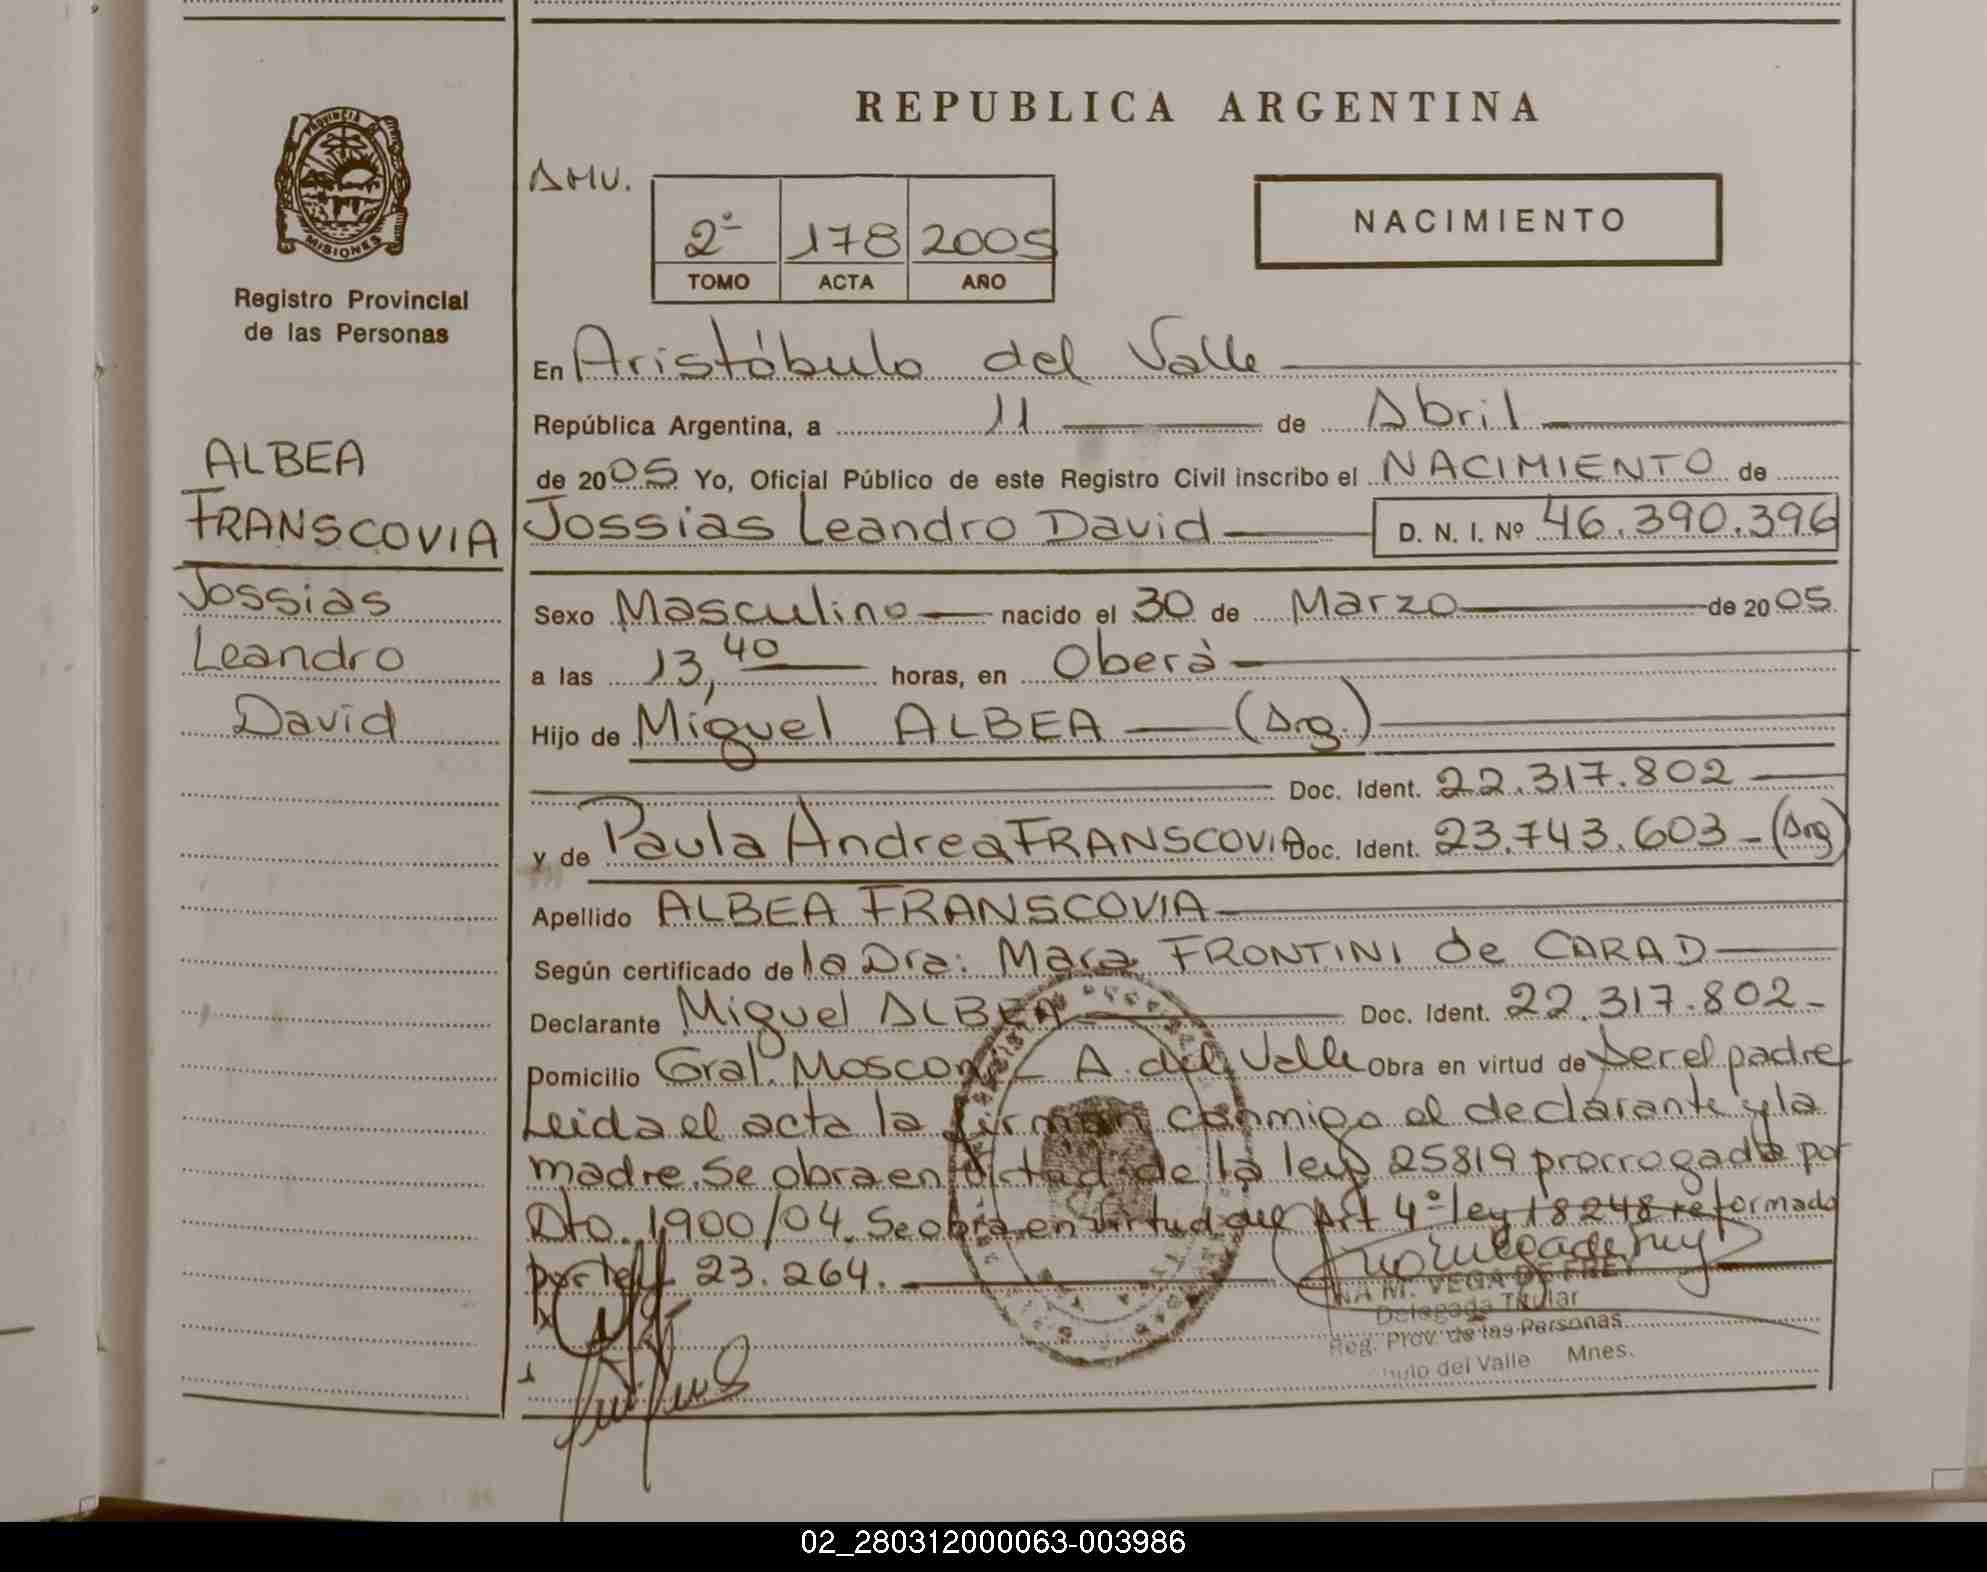 REPUBLICA ARGENTINA
PROVINCIA DE
MISIONES
Registro Provincial
de las Personas
AMV.
2º 178 2005
TOMO ACTA AÑO
NACIMIENTO
ALBEA
FRANSCOVIA
Jossias
Leandro
David
En Aristóbulo del Valle
República Argentina, a 11 de Abril
de 2005 Yo, Oficial Público de este Registro Civil inscribo el NACIMIENTO de
Jossias Leandro David D. N. I. Nº 46.390.396
Sexo Masculino nacido el 30 de Marzo de 2005
a las 13,40 horas, en Oberá
Hijo de Miguel ALBEA (Arg.)
Doc. Ident. 22.317.802
y de Paula Andrea FRANSCOVIA Doc. Ident. 23.743.603 - (Arg)
Apellido ALBEA FRANSCOVIA
Según certificado de la Dra: Mara FRONTINI de CARAD
Declarante Miguel ALBEA Doc. Ident. 22.317.802-
Domicilio Gral. Mosconi - A. del Valle Obra en virtud de ser el padre
Leida el acta la firman conmigo el declarante y la
madre. Se obra en virtud de la ley 25819 prorrogada por
Dto. 1900/04. Se obra en virtud del Art 4º ley 18248 reformado
por ley 23.264.
M. VEGA DE FREY
Delegada Titular
Reg. Prov. de las Personas
bulo del Valle Mnes.
02_280312000063-003986